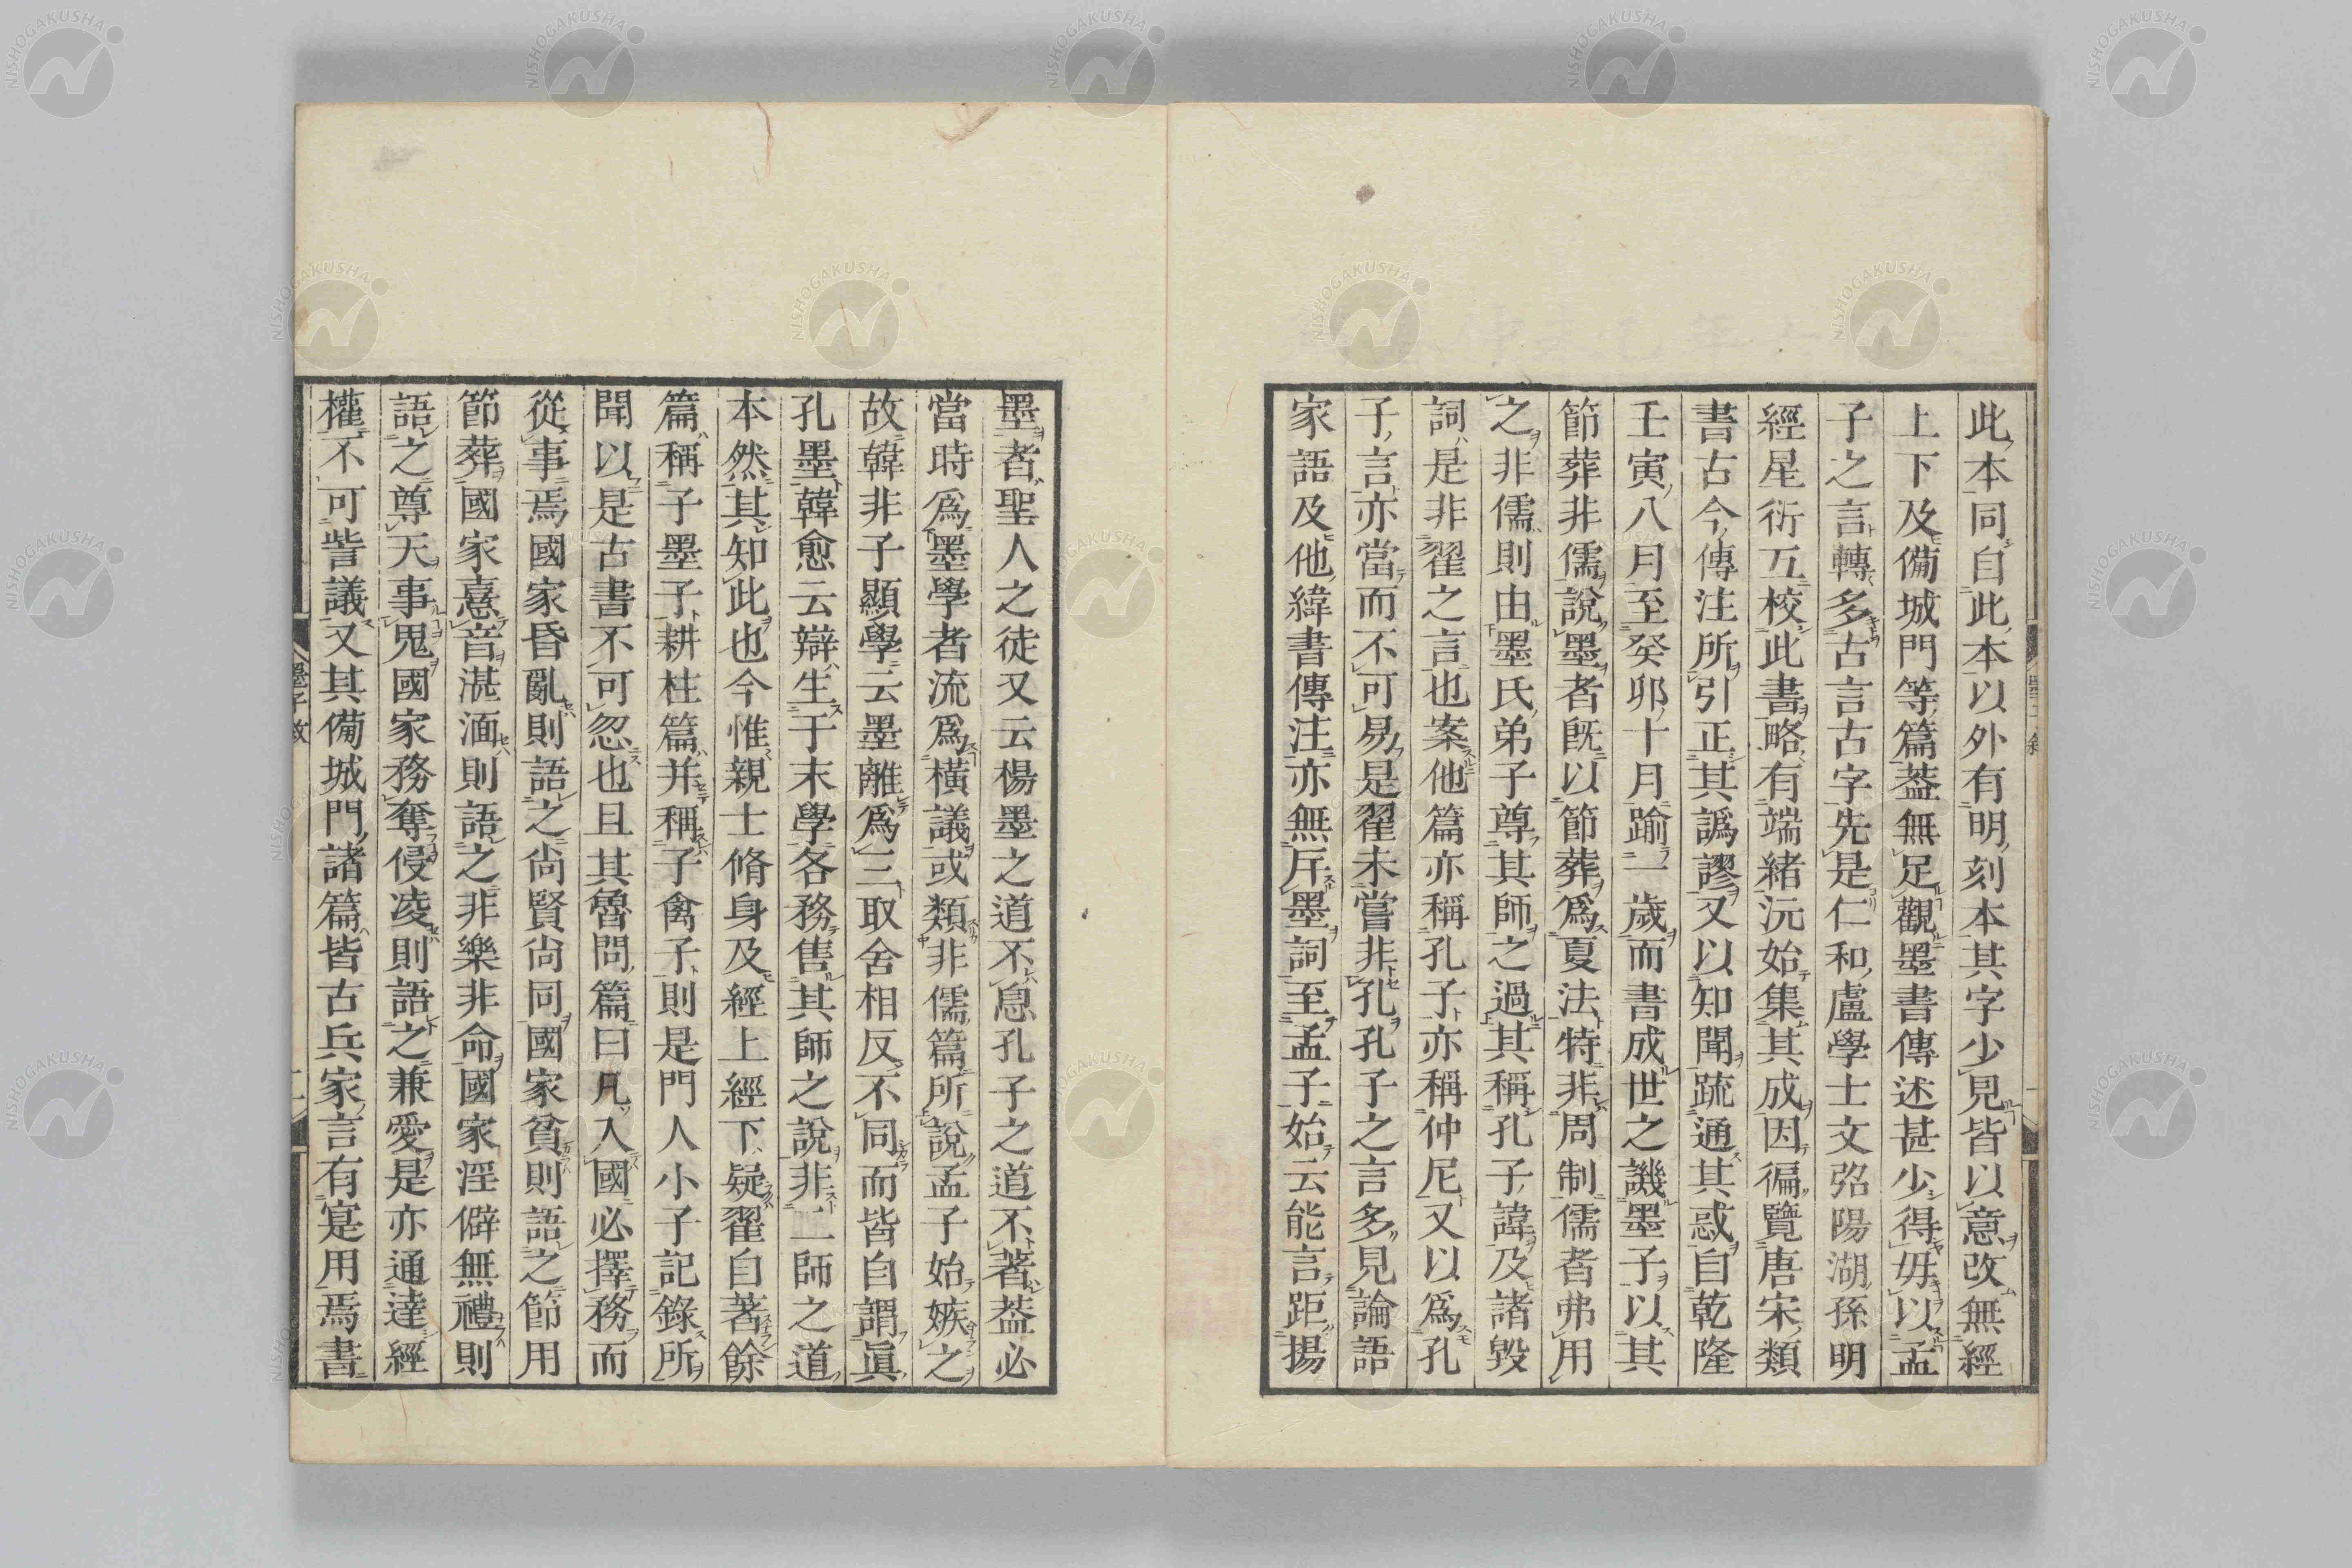 此本同自此本以外有明刻本其字少見皆以意改無經
上下及備城門等篇葢無足觀墨書傳述甚少得毋以孟
子之言轉多古言古字先是仁和盧學士文弨陽湖孫明
經星衍互校此書略有端緒沅始集其成因徧覽唐宋類
書古今傳注所引正其譌謬又以知聞疏通其惑自乾隆
壬寅八月至癸卯十月踰一歲而書成世之譏墨子以其
節葬非儒說墨者旣以節葬爲夏法特非周制儒者弗用
之非儒則由墨氏弟子尊其師之過其稱孔子諱及諸毀
詞是非翟之言也案他篇亦稱孔子亦稱仲尼又以爲孔
子言亦當而不可易是翟未嘗非孔孔子之言多見論語
家語及他緯書傳注亦無斥墨詞至孟子始云能言距揚
墨者聖人之徒又云楊墨之道不息孔子之道不著葢必
當時爲墨學者流爲橫議或類非儒篇所說孟子始嫉之
故韓非子顯學云墨離爲三取舍相反不同而皆自謂眞
孔墨韓愈云辯生于末學各務售其師之說非二師之道
本然其知此也今惟親士脩身及經上經下疑翟自著餘
篇稱子墨子耕柱篇并稱子禽子則是門人小子記錄所
聞以是古書不可忽也且其魯問篇曰凡入國必擇務而
從事焉國家昏亂則語之尙賢尙同國家貧則語之節用
節葬國家憙音湛湎則語之非樂非命國家淫僻無禮則
語之尊天事鬼國家務奪侵凌則語之兼愛是亦通達經
權不可訾議又其備城門諸篇皆古兵家言有寔用焉書
墨子敘